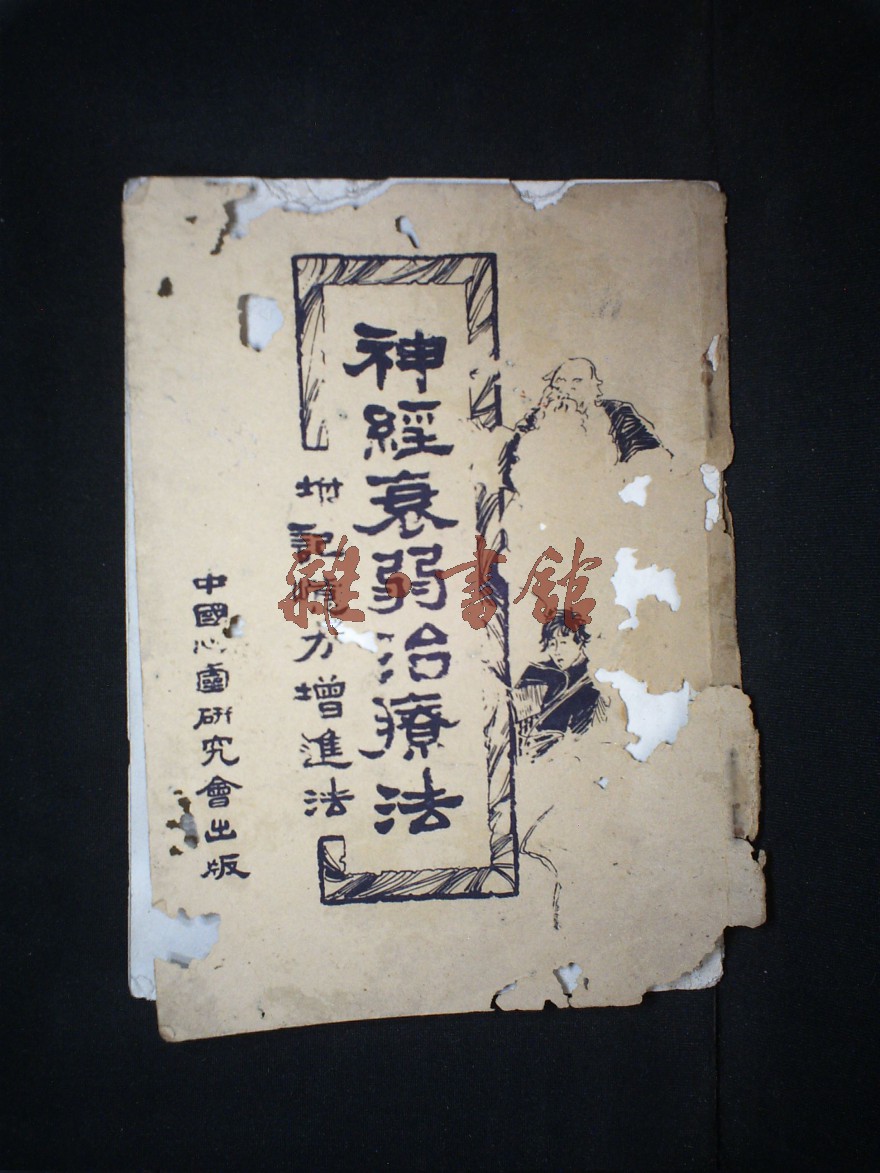 神經衰弱治療法
增記憶力增進法
中國心靈研究會出版
雜·書館